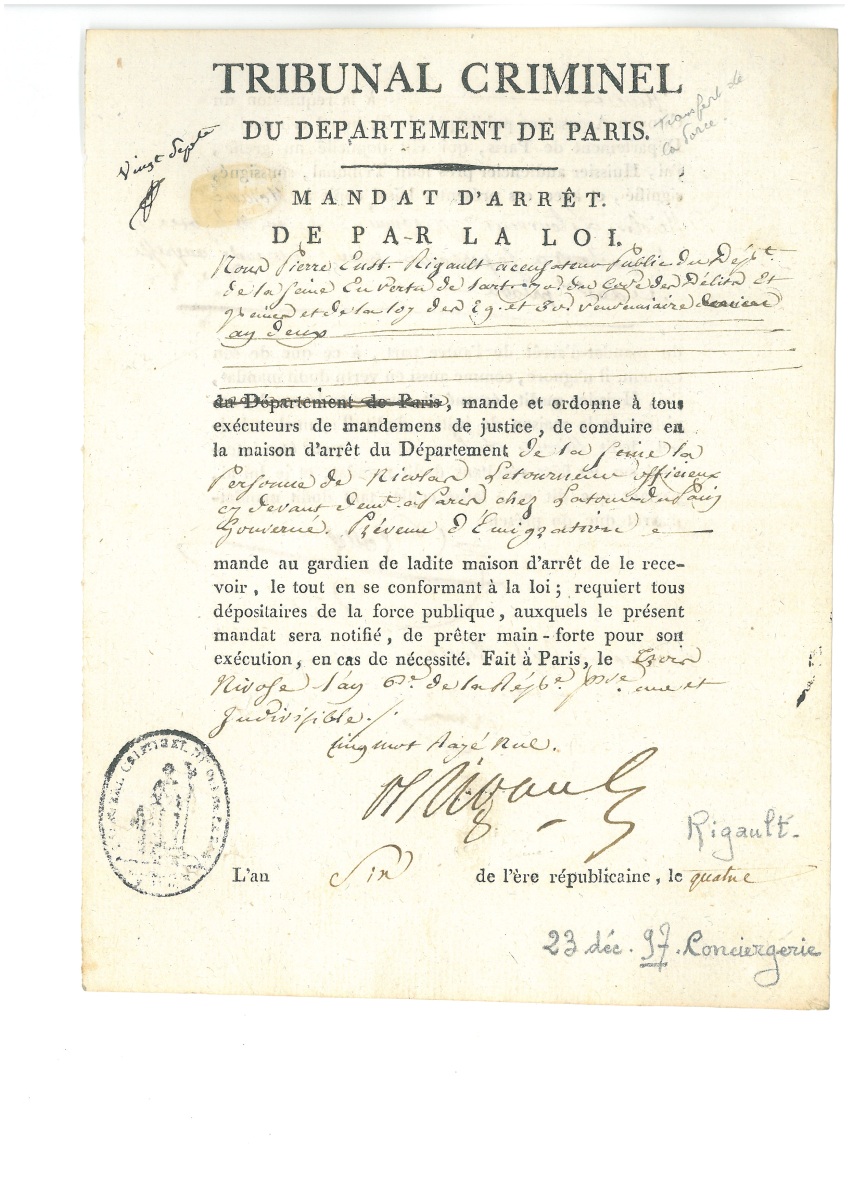 TRIBUNAL CRIMINEL
transfert de
la force.
DU DEPARTEMENT DE PARIS.
Vingt Sept
MANDAT D'ARRÊT.
DE PAR LA LOI.
Nous Pierre Eust. Rigault accusateur Public du Dépt.
de la Seine En vertu de l'art. 70. du Code des Délits Et
Peines et de la loy des 29. et 30. Vendemiaire
an deux
du Département de Paris, mande et ordonne à tous
exécuteurs de mandemens de justice, de conduire en
la maison d'arrêt du Département de la Seine la
Personne de Nicolas Letourneur officieux
cy devant demt. à Paris chez Latour du Pin
Gouverné. Prévenu d'Emigration
mande au gardien de ladite maison d'arrêt de le rece-
voir, le tout en se conformant à la loi; requiert tous
dépositaires de la force publique, auxquels le présent
mandat sera notifié, de prêter main-forte pour son
exécution, en cas de nécessité. Fait à Paris, le trois
Nivose l'an 6e. de la Répbe. une et
Indivisible.
Cinq mot Rayé Nul.
Rigault
Rigault.
L'an Six de l'ère républicaine, le quatre
23 déc. 97. Conciergerie